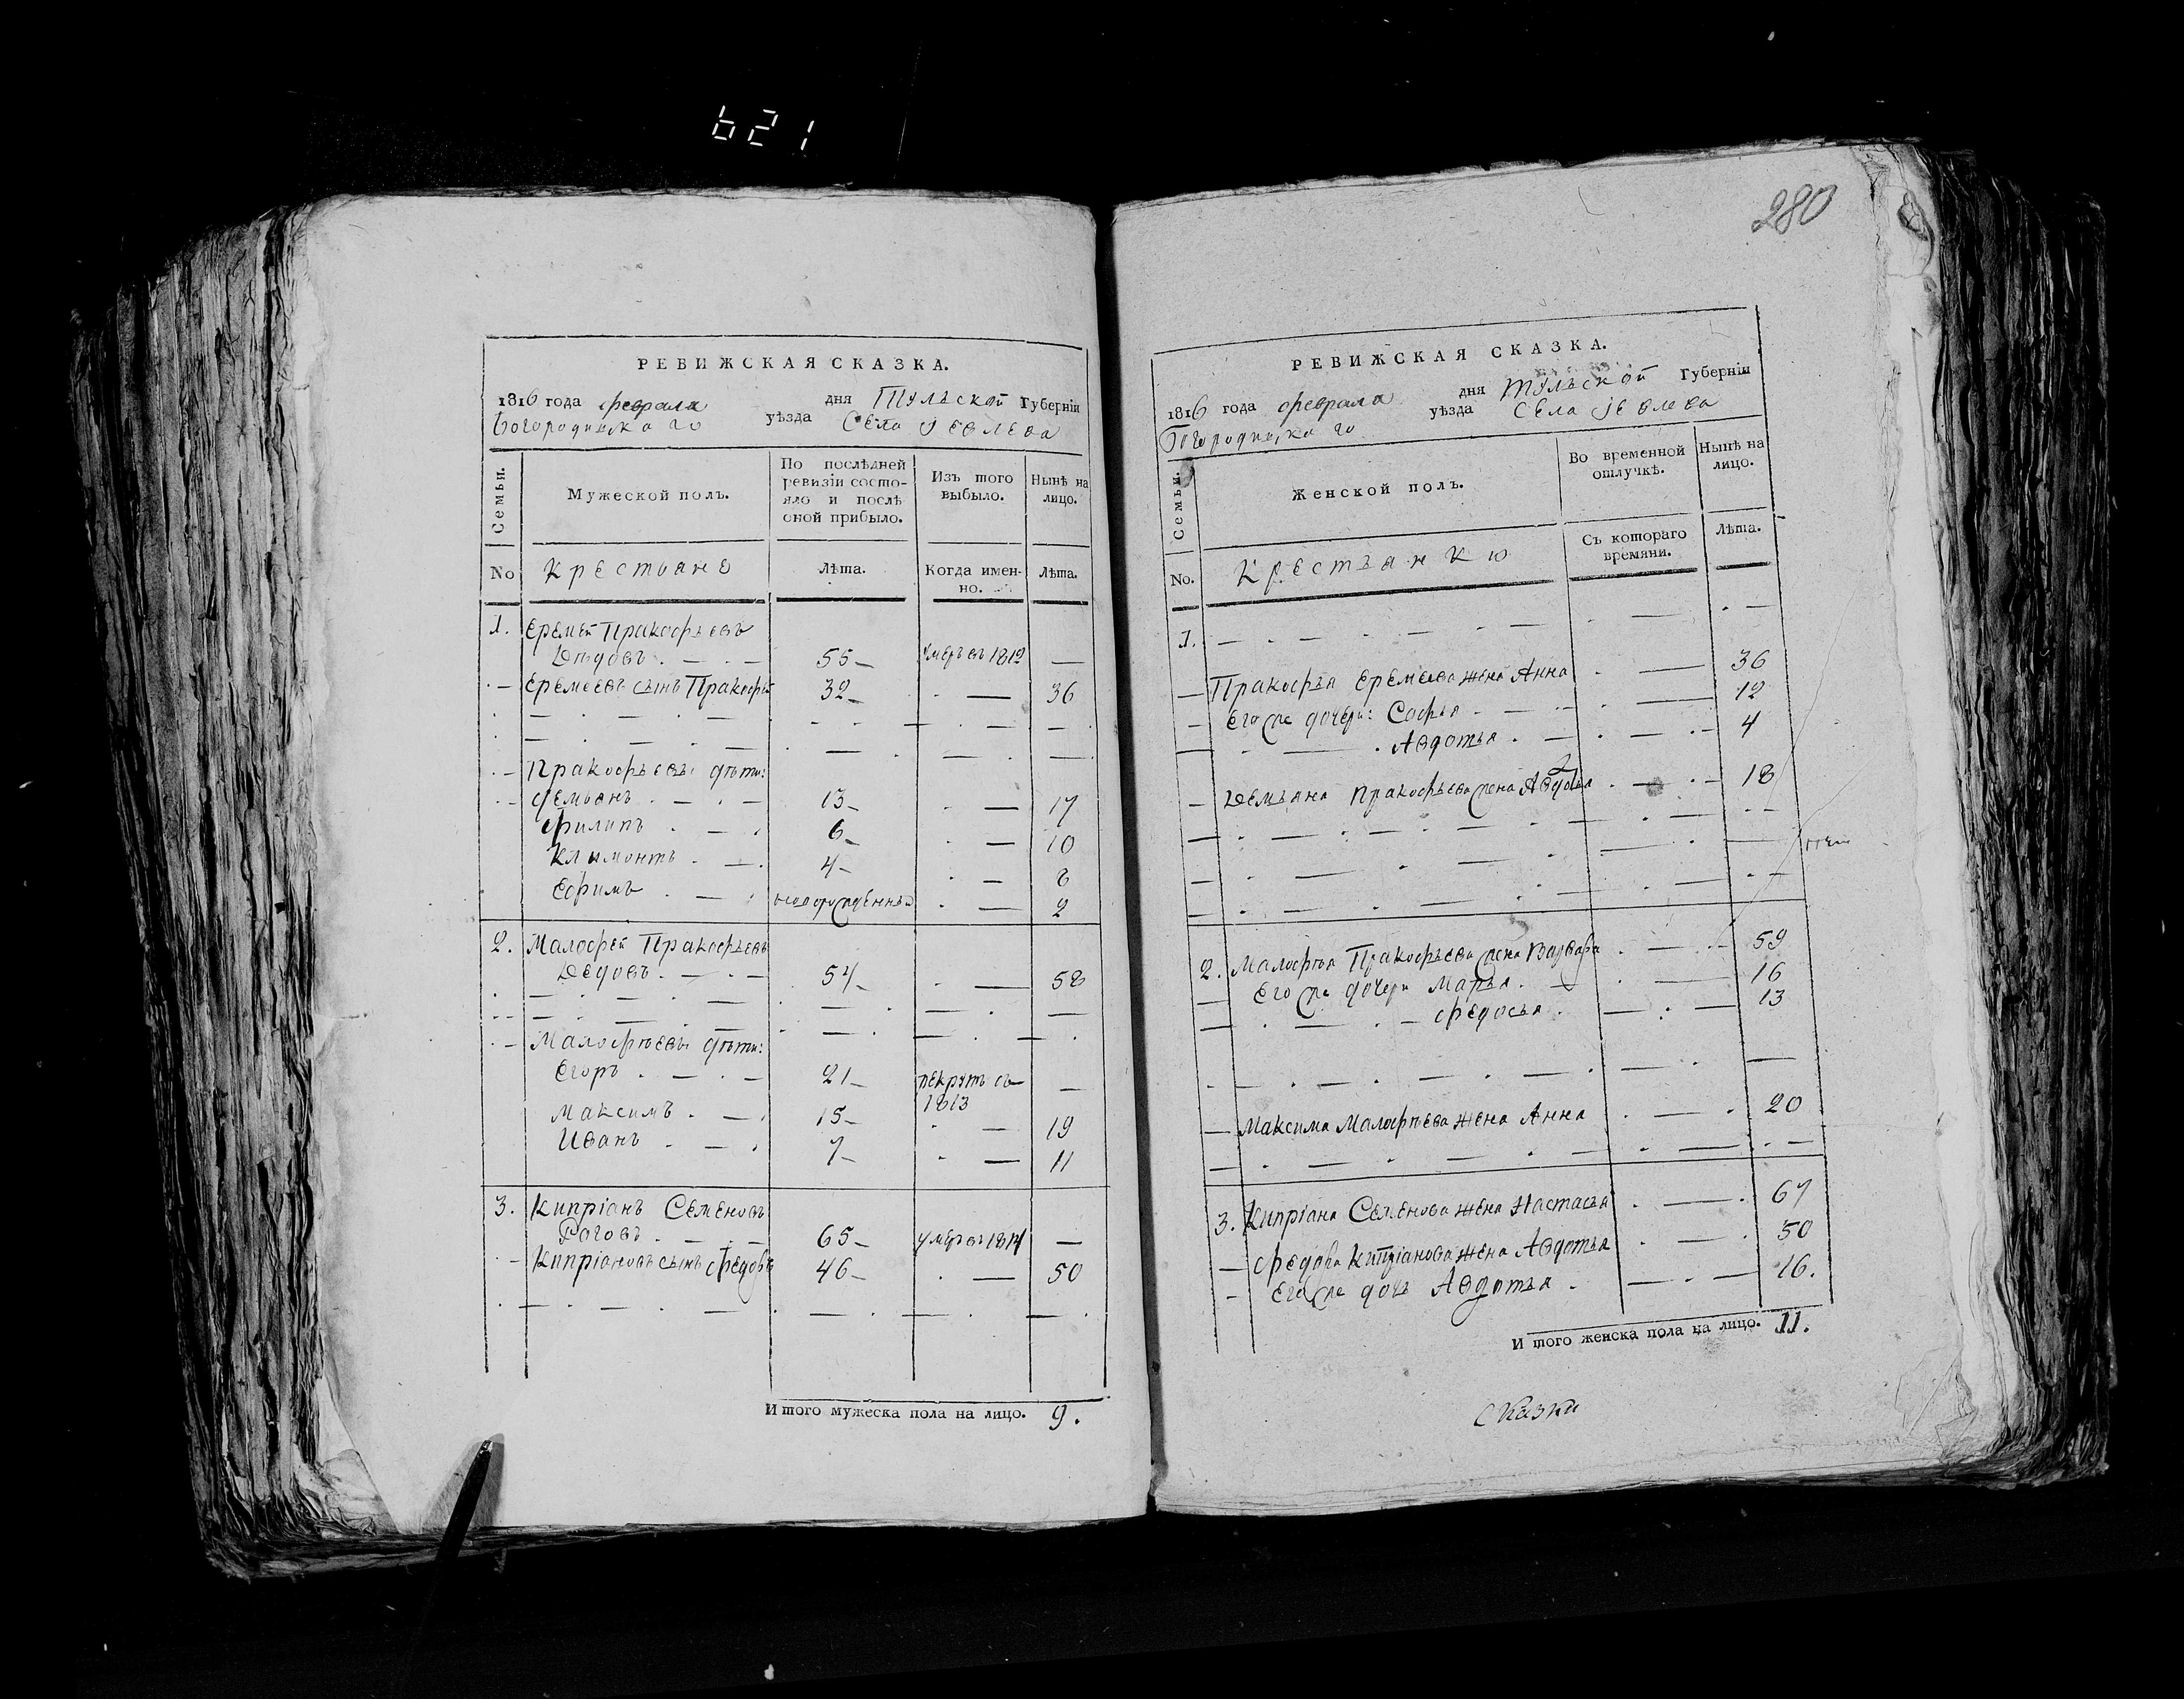 621
РЕВИЖСКАЯ СКАЗКА.
1816 года февраля дня Тульской Губерніи
Богородицкаго уѣзда Села Іевлева
Семьи.
Мужеской полъ.
По послѣдней ревизіи состояло и послѣ оной прибыло.
Изъ того выбыло.
Нынѣ на лицо.
No Крестьяне Лѣта. Когда именно. Лѣта.
1. Еремѣй Пракофьевъ
Дѣдовъ. 55 умеръ въ 1812 —
Еремеевъ сынъ Пракофей 32 — 36
Пракофьевы дѣти:
Демьянъ 13 — 17
Филипъ 6 — 10
Климонтъ 4 — 8
Ефимъ новорожденный — 2
2. Малофей Пракофьевъ
Дедовъ. 54 — 58
Малофѣевы дѣти:
Егоръ 21 рекрутъ съ —
1813
Максимъ 15 — 19
Иванъ 7 — 11
3. Кипріанъ Семеновъ
Роговъ 65 умеръ въ 1814 —
Кипріановъ сынъ Федоръ 46 — 50
Итого мужеска пола на лицо. 9.
280
РЕВИЖСКАЯ СКАЗКА.
1816 года февраля дня Тульской Губерніи
Богородицкаго уѣзда Села Іевлева
Семьи.
Женской полъ.
Во временной отлучкѣ.
Нынѣ на лицо.
No. Крестьянки Съ котораго времяни. Лѣта.
1.
Пракофья Еремеева жена Анна 36
Его же дочери: Софья 12
Авдотья 4
Демьяна Пракофьева жена Авдотья 18
2. Малофѣя Пракофьева жена Варвара 59
Его же дочери Марья 16
Федосья 13
Максима Малофѣева жена Анна 20
3. Кипріана Семенова жена Настасья 67
Федора Кипріанова жена Авдотья 50
Его же дочь Авдотья 16.
Итого женска пола на лицо. 11.
Сказки